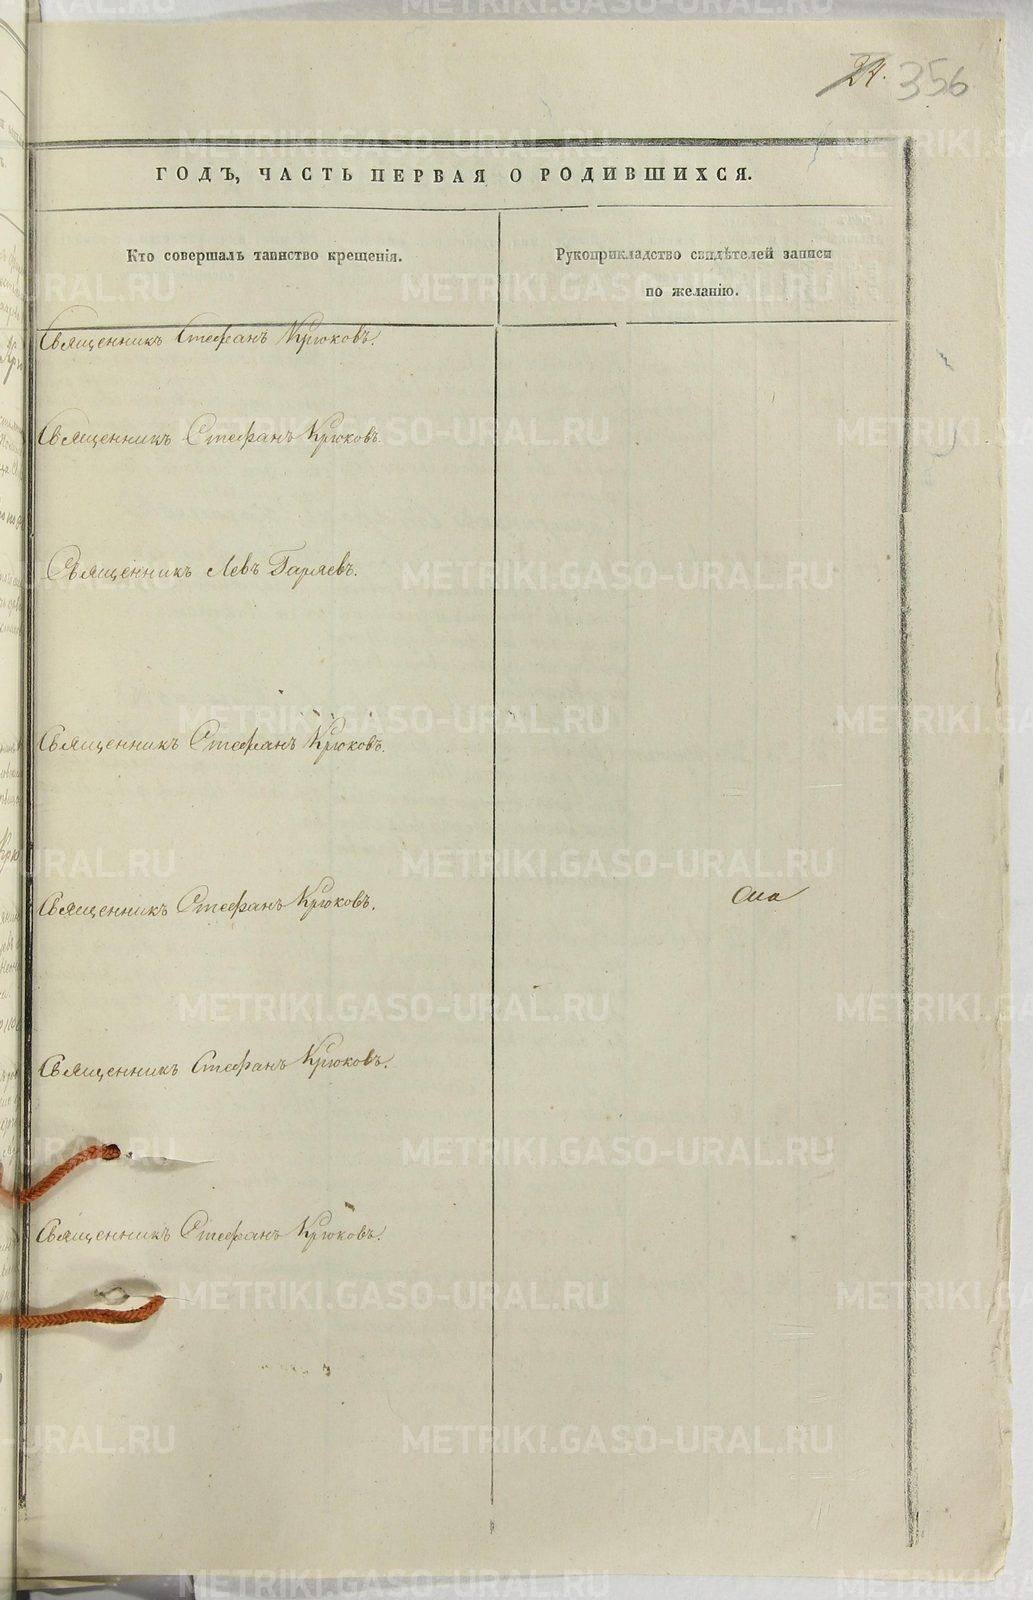 24. 356
ГОДЪ, ЧАСТЬ ПЕРВАЯ О РОДИВШИХСЯ.
Кто совершалъ таинство крещенія.
Рукоприкладство свидѣтелей записи
по желанію.
Священникъ Стефанъ Крюковъ.
Священникъ Стефанъ Крюковъ.
Священникъ Левъ Гаряевъ.
Священникъ Стефанъ Крюковъ.
Священникъ Стефанъ Крюковъ.
Священникъ Стефанъ Крюковъ.
Священникъ Стефанъ Крюковъ.
METRIKI.GASO-URAL.RU